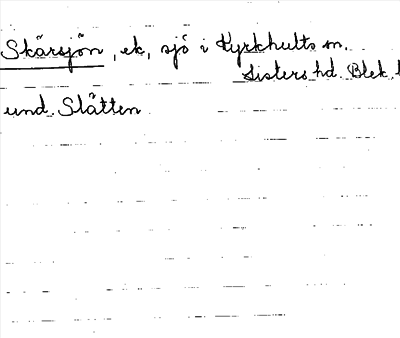 Skärsjön, ek, sjö i Kyrkhults sn.
Listers hd. Blek. l
und. Slätten